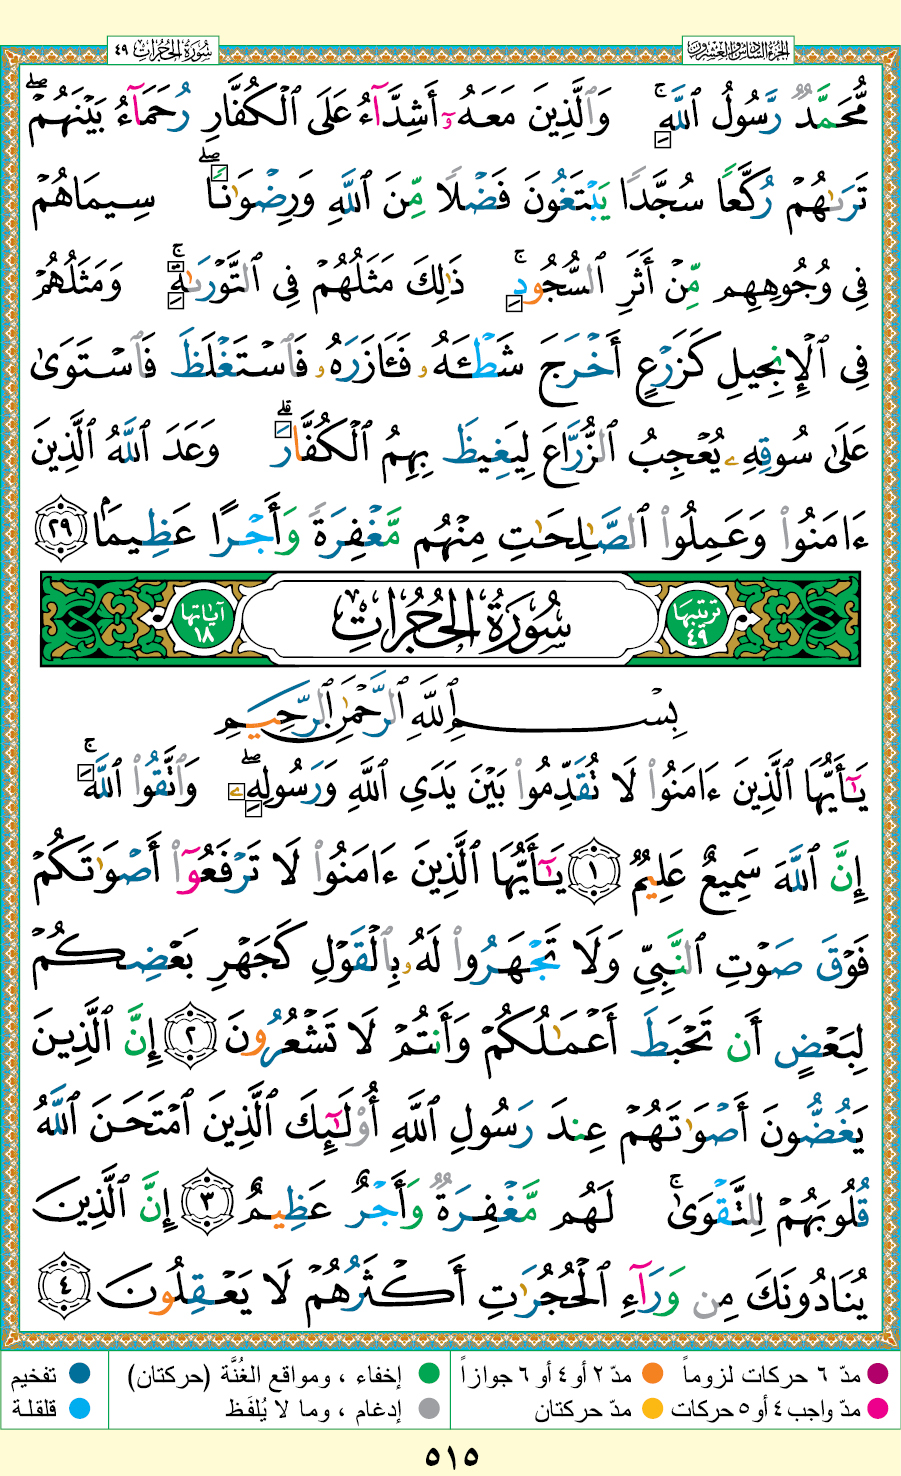 سُورَةُ الحُجُرَاتِ ٤٩
الجزء السادس والعشرون
مُّحَمَّدٌ رَّسُولُ ٱللَّهِۚ وَٱلَّذِينَ مَعَهُۥٓ أَشِدَّآءُ عَلَى ٱلْكُفَّارِ رُحَمَآءُ بَيْنَهُمْۖ
تَرَىٰهُمْ رُكَّعًا سُجَّدًا يَبْتَغُونَ فَضْلًا مِّنَ ٱللَّهِ وَرِضْوَٰنًاۖ سِيمَاهُمْ
فِى وُجُوهِهِم مِّنْ أَثَرِ ٱلسُّجُودِۚ ذَٰلِكَ مَثَلُهُمْ فِى ٱلتَّوْرَىٰةِۚ وَمَثَلُهُمْ
فِى ٱلْإِنجِيلِ كَزَرْعٍ أَخْرَجَ شَطْـَٔهُۥ فَـَٔازَرَهُۥ فَٱسْتَغْلَظَ فَٱسْتَوَىٰ
عَلَىٰ سُوقِهِۦ يُعْجِبُ ٱلزُّرَّاعَ لِيَغِيظَ بِهِمُ ٱلْكُفَّارَۗ وَعَدَ ٱللَّهُ ٱلَّذِينَ
ءَامَنُوا۟ وَعَمِلُوا۟ ٱلصَّٰلِحَٰتِ مِنْهُم مَّغْفِرَةً وَأَجْرًا عَظِيمًۢا ٢٩
ترتيبها ٤٩ سُورَةُ الحُجُرَاتِ آياتها ١٨
بِسْمِ ٱللَّهِ ٱلرَّحْمَٰنِ ٱلرَّحِيمِ
يَٰٓأَيُّهَا ٱلَّذِينَ ءَامَنُوا۟ لَا تُقَدِّمُوا۟ بَيْنَ يَدَىِ ٱللَّهِ وَرَسُولِهِۦۖ وَٱتَّقُوا۟ ٱللَّهَۚ
إِنَّ ٱللَّهَ سَمِيعٌ عَلِيمٌ ١ يَٰٓأَيُّهَا ٱلَّذِينَ ءَامَنُوا۟ لَا تَرْفَعُوٓا۟ أَصْوَٰتَكُمْ
فَوْقَ صَوْتِ ٱلنَّبِىِّ وَلَا تَجْهَرُوا۟ لَهُۥ بِٱلْقَوْلِ كَجَهْرِ بَعْضِكُمْ
لِبَعْضٍ أَن تَحْبَطَ أَعْمَٰلُكُمْ وَأَنتُمْ لَا تَشْعُرُونَ ٢ إِنَّ ٱلَّذِينَ
يَغُضُّونَ أَصْوَٰتَهُمْ عِندَ رَسُولِ ٱللَّهِ أُو۟لَٰٓئِكَ ٱلَّذِينَ ٱمْتَحَنَ ٱللَّهُ
قُلُوبَهُمْ لِلتَّقْوَىٰۚ لَهُم مَّغْفِرَةٌ وَأَجْرٌ عَظِيمٌ ٣ إِنَّ ٱلَّذِينَ
يُنَادُونَكَ مِن وَرَآءِ ٱلْحُجُرَٰتِ أَكْثَرُهُمْ لَا يَعْقِلُونَ ٤
مدّ ٦ حركات لزوماً مدّ ٢ أو ٤ أو ٦ جوازاً إخفاء ، ومواقع الغُنَّة (حركتان) تفخيم
مدّ واجب ٤ أو ٥ حركات مدّ حركتان إدغام ، وما لا يُلفَظ قلقلة
٥١٥